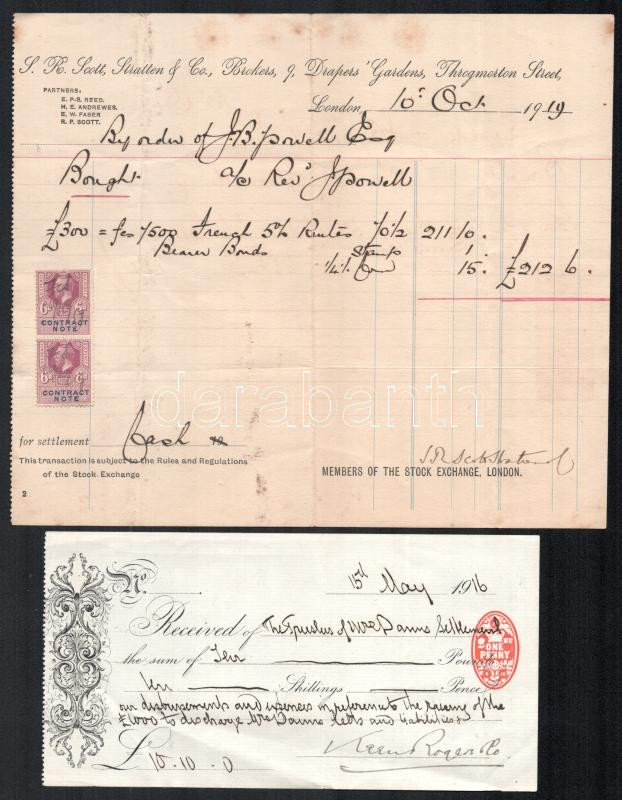 S. R. Scott, Stratten & Co., Brokers, 9, Drapers' Gardens, Throgmorton Street,
PARTNERS:
E. P-S. REED.
H. E. ANDREWES.
E. W. FASER
R. P. SCOTT.
London, 10 Oct 1919
By order of J. B. Powell Esq
Bought a/c Revd J Powell
£300 = fcs 7500 French 5% Rentes 70½ 211 10.
Bearer Bonds Stamp 1
¼% Com 15. £212 6.
6d 6d
CONTRACT
NOTE
6d 6d
CONTRACT
NOTE
darabanth
for settlement Cash
This transaction is subject to the Rules and Regulations
of the Stock Exchange
MEMBERS OF THE STOCK EXCHANGE, LONDON.
2
No.
15th May 1916
Received of The Trustees of Settlement
the sum of Ten Pounds
Ten Shillings Pence
our disbursements and expenses in reference to the raising of the
£1000 to discharge debts and liabilities
ONE
PENNY
£10.10.0
Keen Rogers & Co